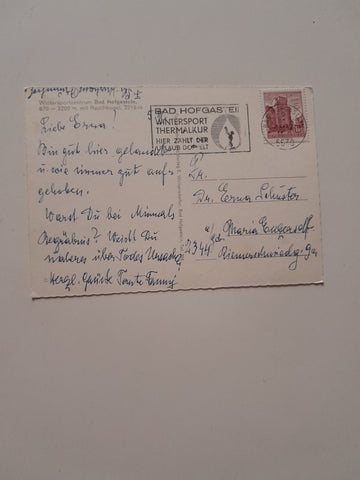 Wintersportzentrum Bad Hofgastein,
Liebe Erna!
Bin gut hier gelandet
u. wie immer gut auf-
gehoben.
Warst Du bei Minnals
Begräbnis? Weißt Du
näheres über Todes Ursache?
Herzl. Grüße Tante Fanny
BAD HOFGASTEIN
WINTERSPORT
THERMALKUR
HIER ZÄHLT DER
URLAUB DOPPELT
Dr. Erna Schuster
Maria Enzersdorf
2344